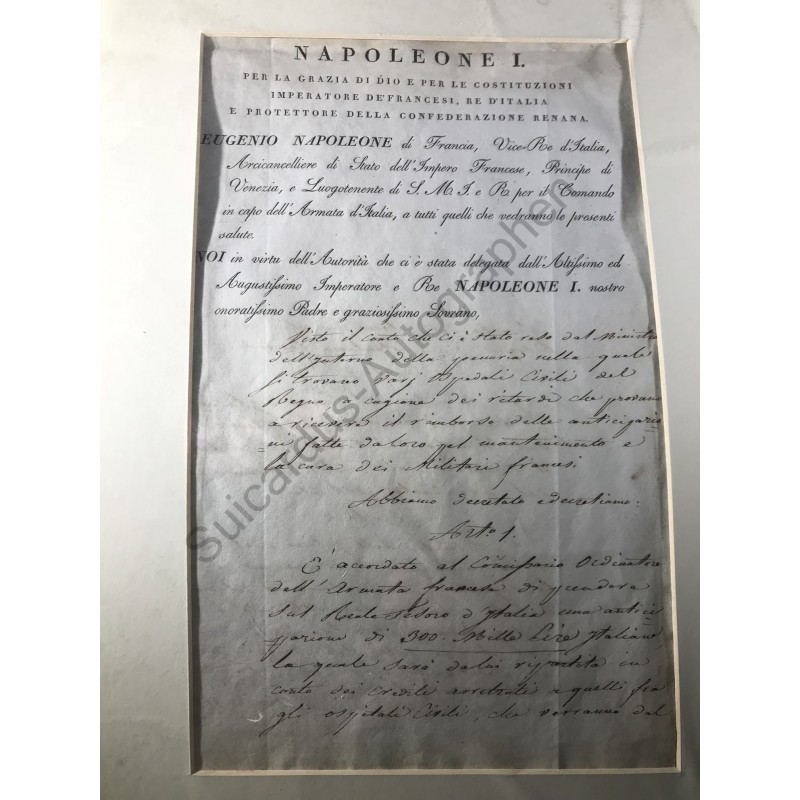 NAPOLEONE I.
PER LA GRAZIA DI DIO E PER LE COSTITUZIONI
IMPERATORE DE'FRANCESI, RE D'ITALIA
E PROTETTORE DELLA CONFEDERAZIONE RENANA.
EUGENIO NAPOLEONE di Francia, Vice-Re d'Italia,
Arcicancelliere di Stato dell'Impero Francese, Principe di
Venezia, e Luogotenente di S. M. I. e R. per il Comando
in capo dell'Armata d'Italia, a tutti quelli che vedranno le presenti
salute.
NOI in virtù dell'Autorità che ci è stata delegata dall'Altissimo ed
Augustissimo Imperatore e Re NAPOLEONE I. nostro
onoratissimo Padre e graziosissimo Sovrano,
Visto il conto che ci è stato reso dal Ministro
dell'Interno della penuria nella quale
si trovano varj Ospedali Civili del
Regno a cagione dei ritardi che provano
a ricevere il rimborso delle anticipazio=
=ni fatte da loro pel mantenimento e
la cura dei Militari francesi
Abbiamo decretato e decretiamo:
Art.o 1.
È accordato al Com̃issario Ordinatore
dell'Armata francese di prendere
sul Reale Tesoro d'Italia una antici=
=pazione di 300. Mille Lire Italiane
la quale sarà da lui ripartita in
conto dei crediti arretrati a quelli fra
gli ospitali Civili, che verranno dal
Suicardus-Autographen